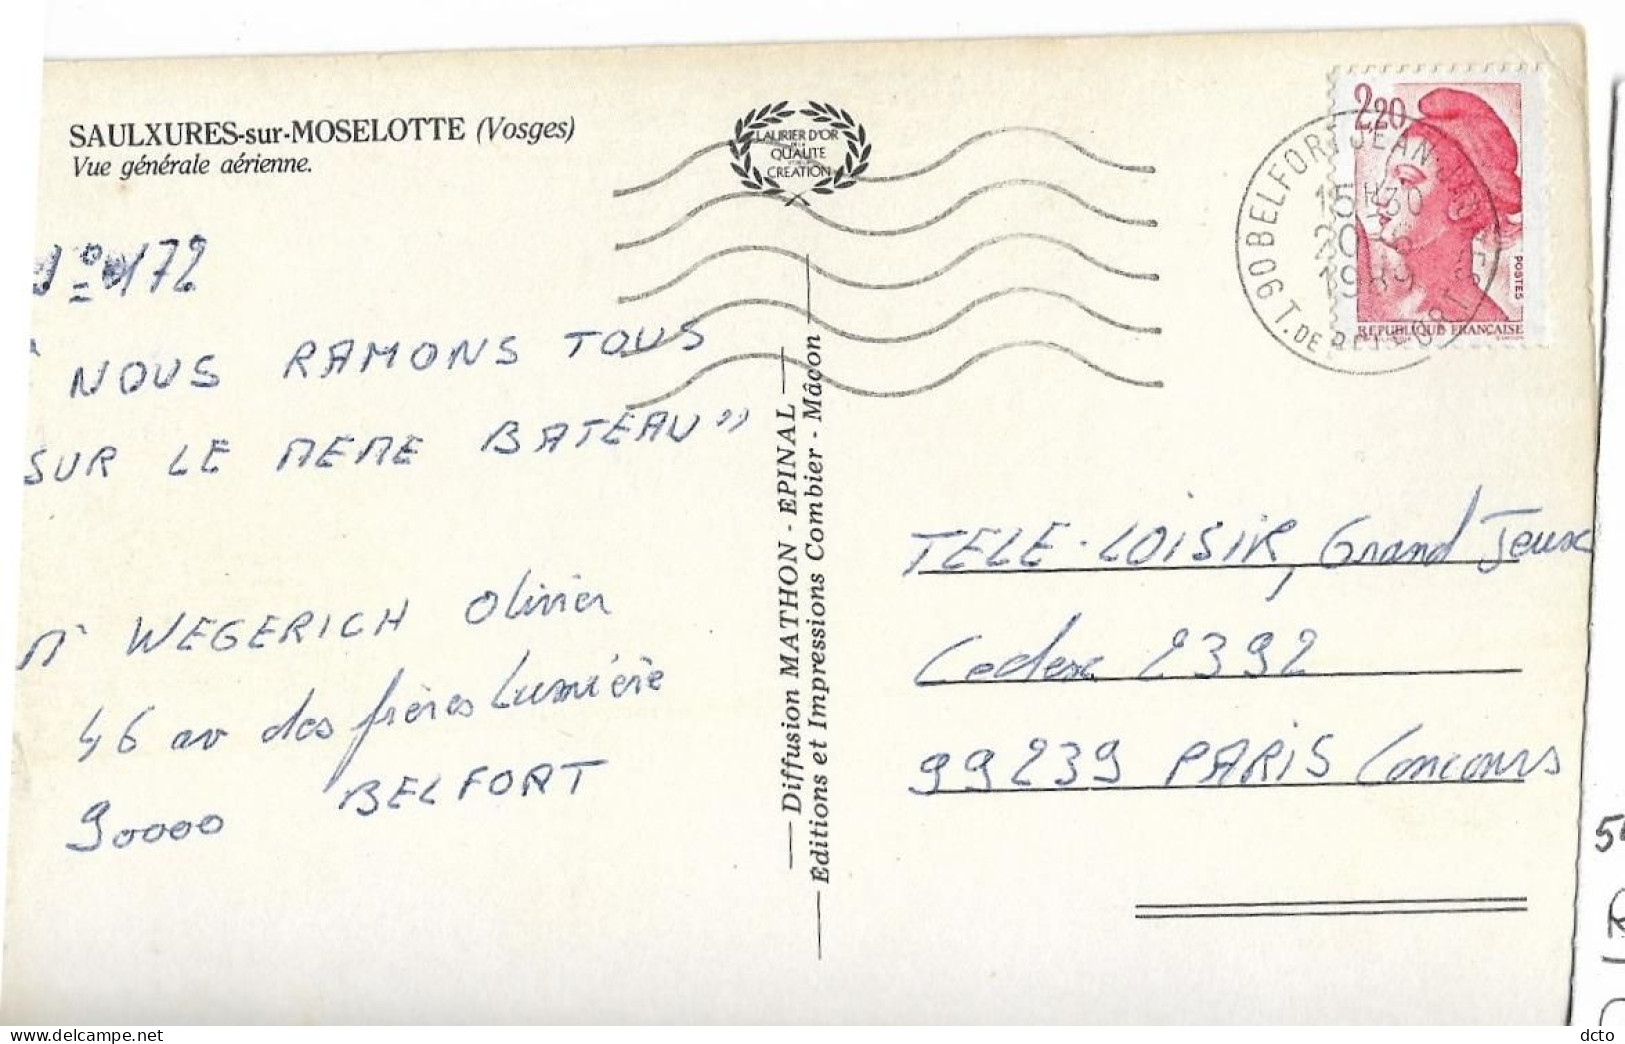 SAULXURES-sur-MOSELOTTE (Vosges)
Vue générale aérienne.
N° 172
" NOUS RAMONS TOUS
SUR LE MEME BATEAU"
Mr WEGERICH Olivier
46 av des frères Lumière
90000 BELFORT
LAURIER D'OR
QUALITE
CREATION
Diffusion MATHON - EPINAL
Editions et Impressions Combier - Mâcon
2,20
POSTES
REPUBLIQUE FRANÇAISE
90 BELFORT JEAN JAURES
15H30
1989
T. DE BELFORT
TELE-LOISIR, Grand Jeux
Cedex 2392
99239 PARIS Concours
dcto